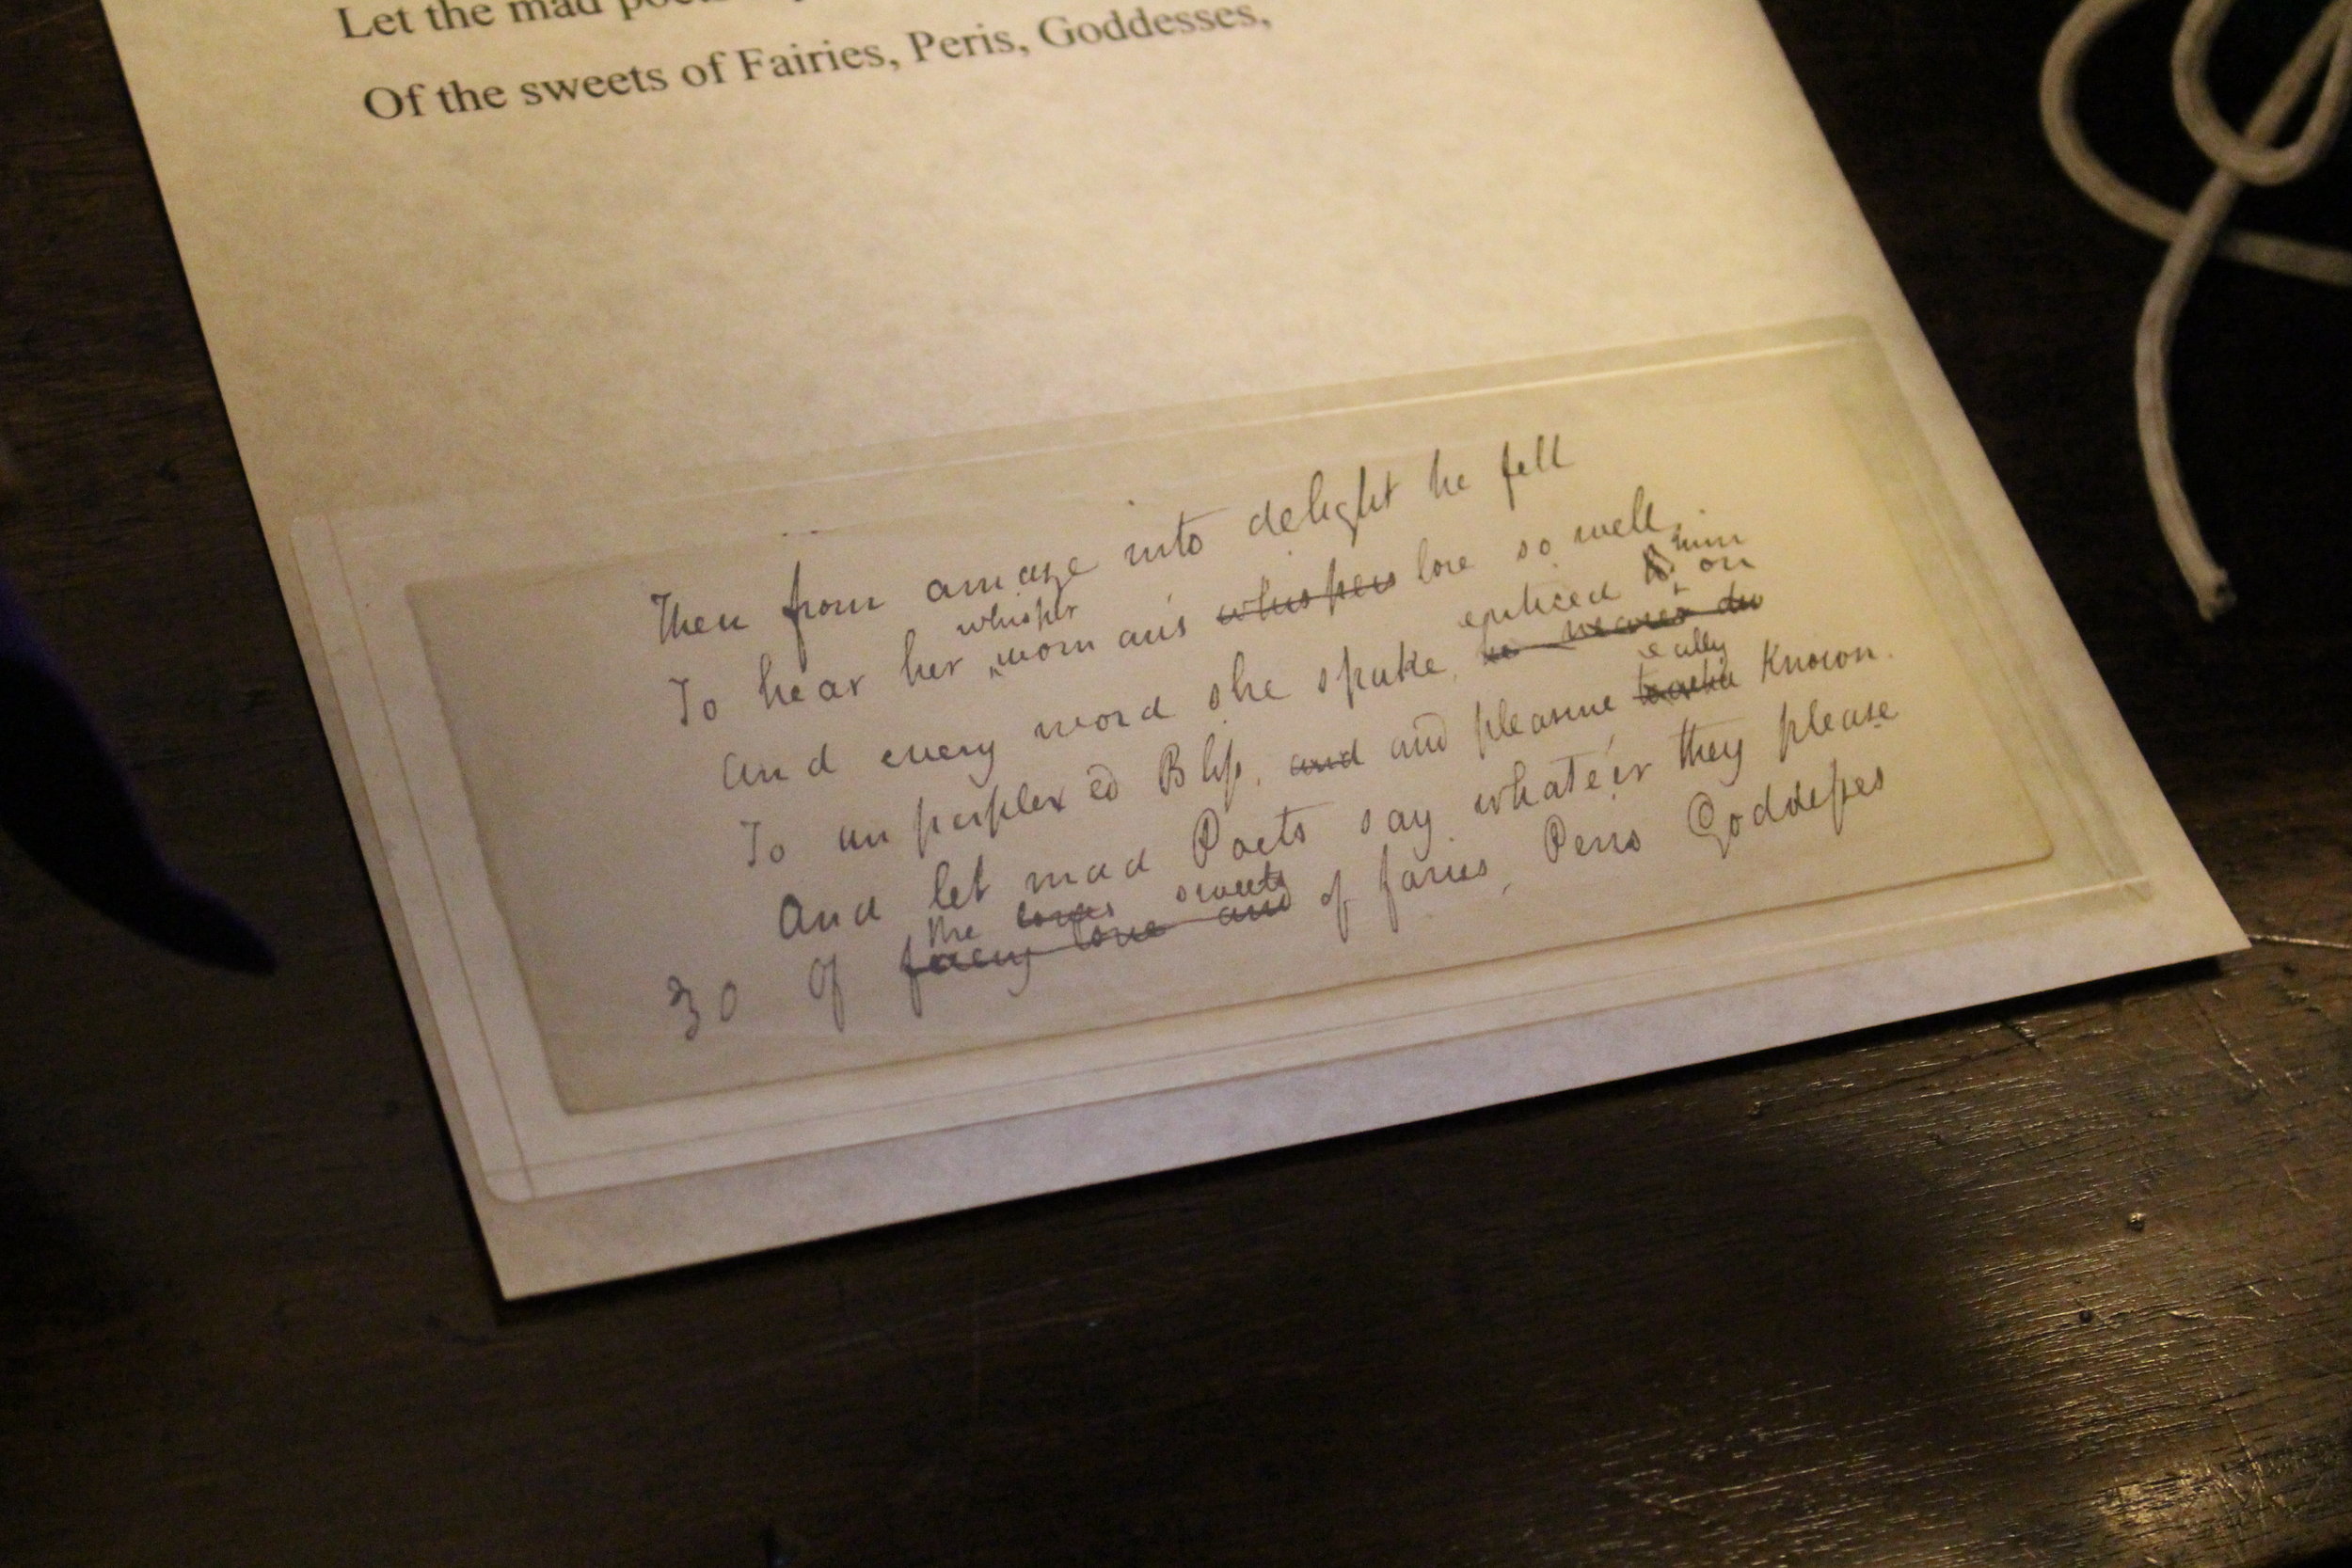 Let the mad
Of the sweets of Fairies, Peris, Goddesses,
Then from amaze into delight he fell
whisper
To hear her woman's whispers love so well
enticed him on
And every word she spake
eally
To unperplex'ed Bliss, and and pleasure known.
And let mad Poets say whate'er they please
the loves sweets
30 Of faery love and of faries, Peris Goddesses